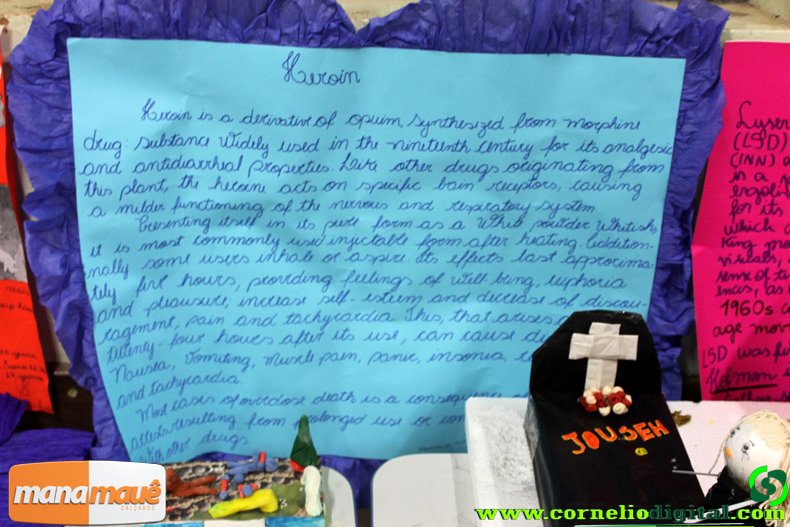 Heroin
Heroin is a derivative of opium, synthesized from morphine
drug: substance widely used in the nineteenth century for its analgesic
and antidiarrheal properties. Like other drugs originating from
this plant, the heroine acts on specific bain receptors, causing
a milder functioning of the nervous and respiratory system
Presenting itself in its pure form as a White powder Whitish,
it is most commonly used injectable form after heating. Addition-
nally some users inhale or aspire. Its effects last approxima
tely five hours, providing feelings of well-being, euphoria
and pleausure, increase self-esteem and decrease of discou-
ragement, pain and tachycardia This, that arises
twenty-four hours after its use, can cause
Nausea, Vomiting, Muscle pain, panic, insonia,
and tachycardia.
Most cases of overdose death is a consequence
resulting from prolonged use or
other drugs.
Lyser
(LSD)
(INN)
is a
ergoli
for its
which
King
visuals,
sense of ti
ences, as
1960s
age mov
LSD was fi
Hofmann
JOUSEH
manamauê
CALÇADOS
www.corneliodigital.com